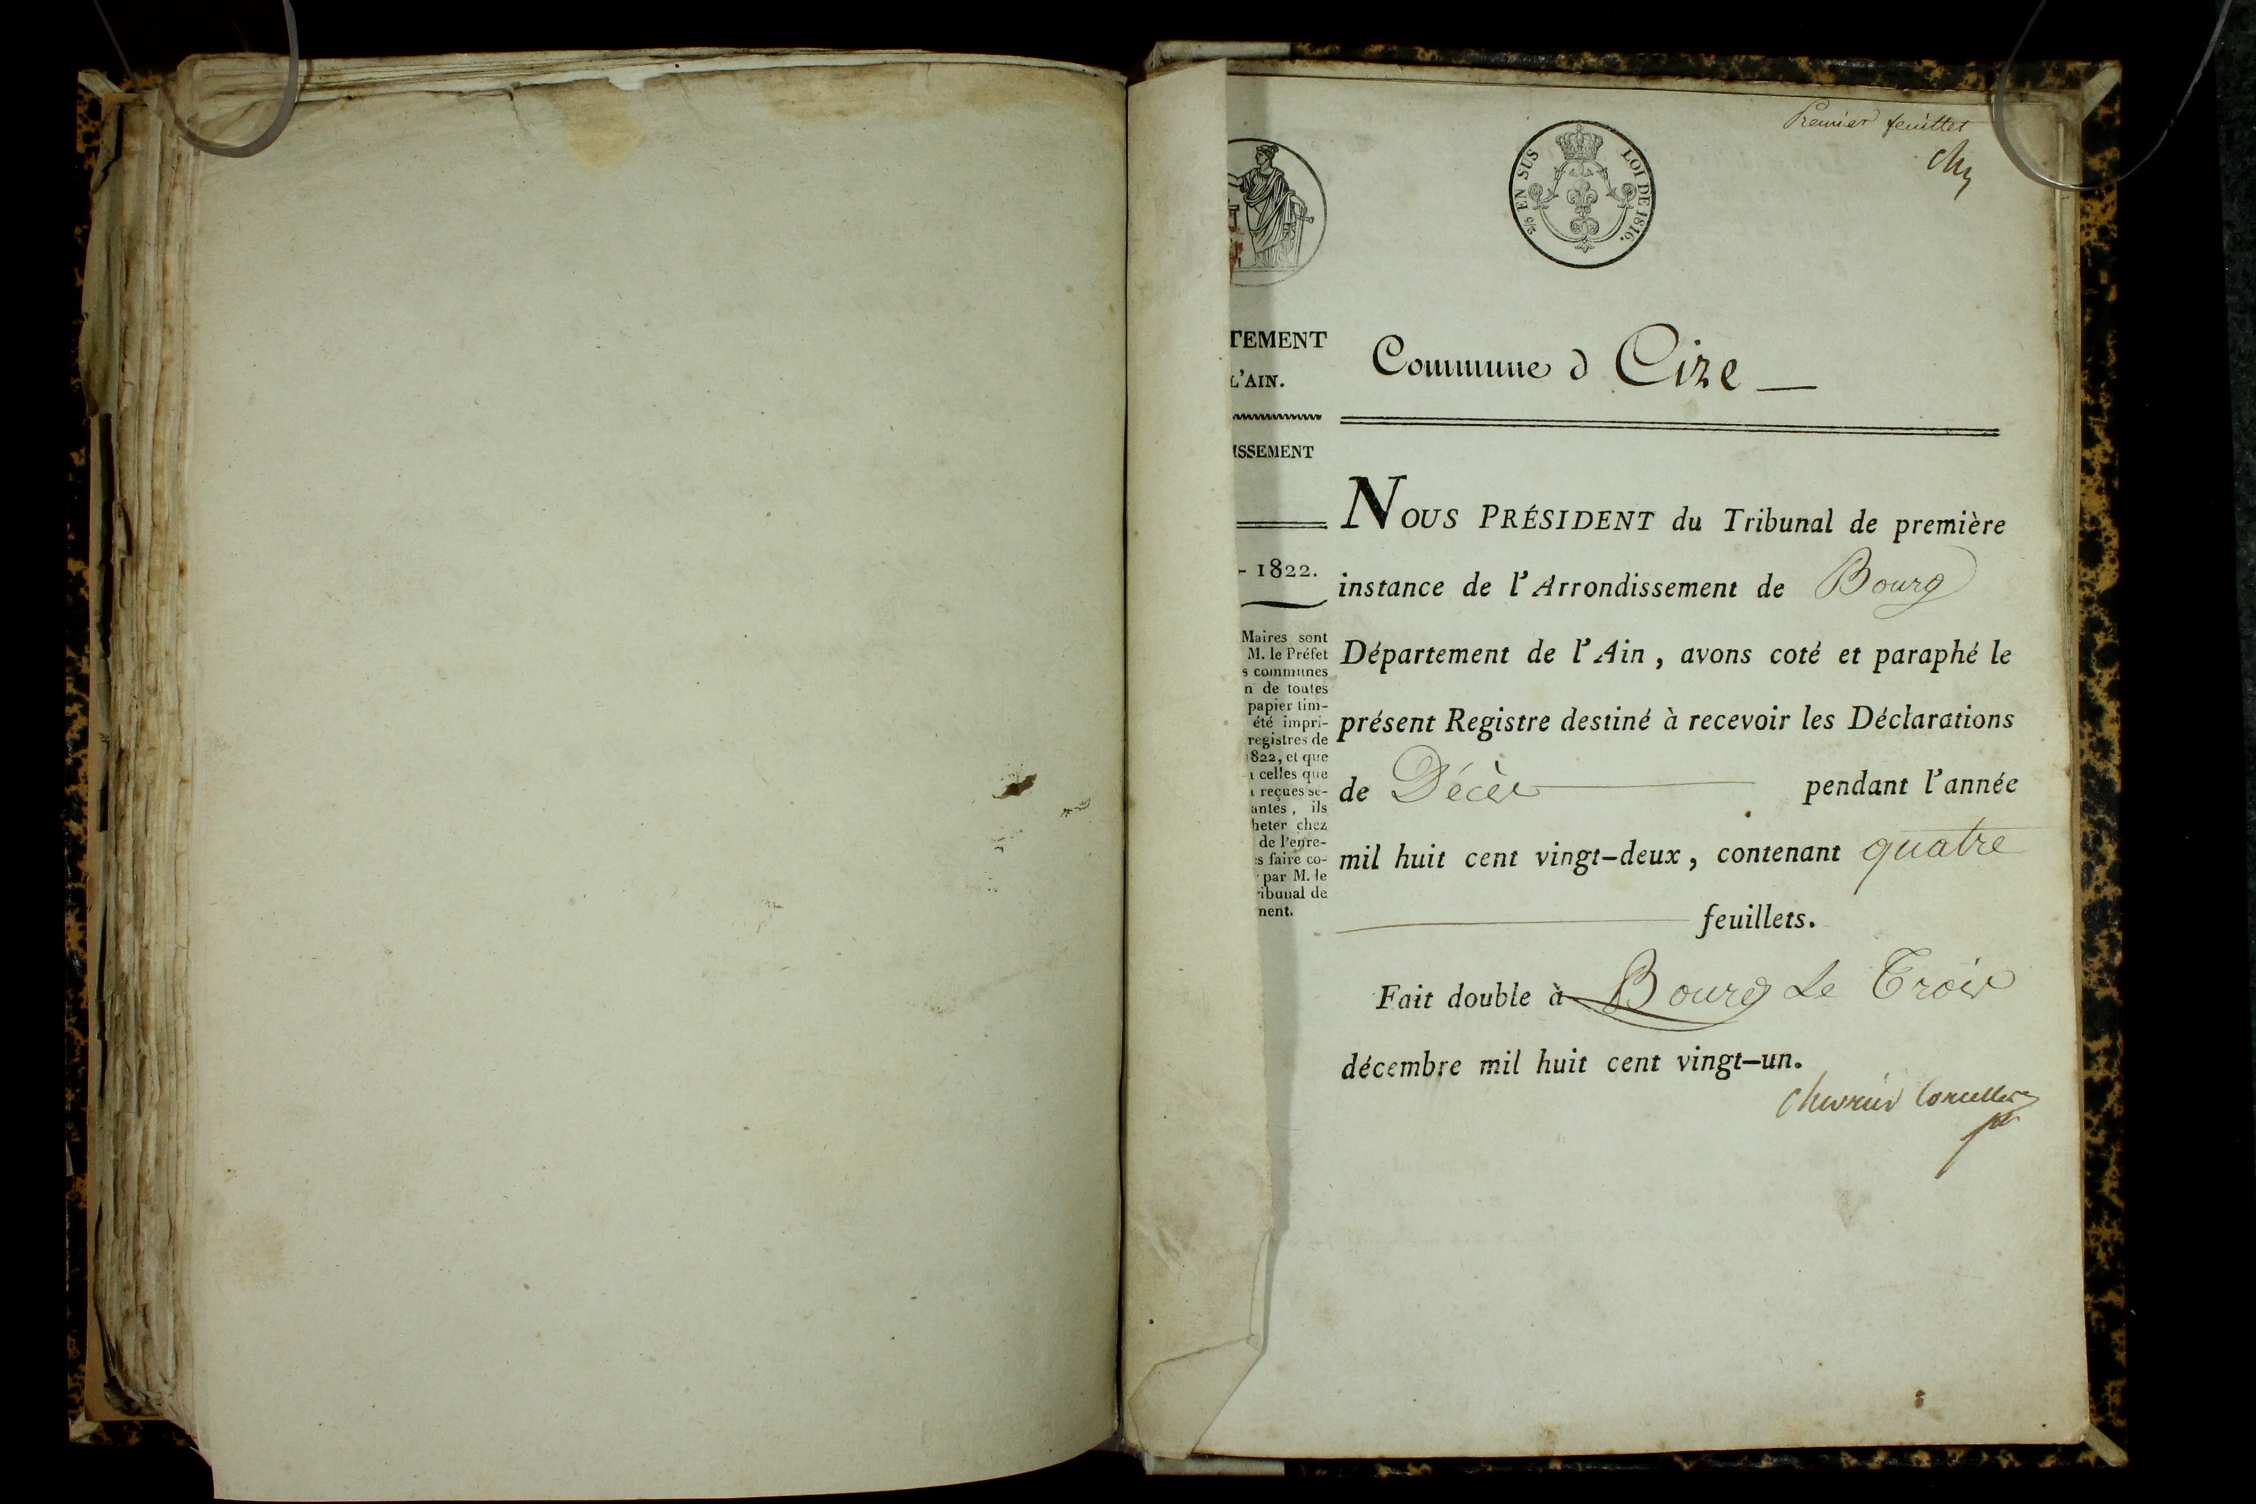 Premier feuillet
2/5 EN SUS LOI DE 1816.
TEMENT
L'AIN.
ISSEMENT
- 1822.
Maires sont
M. le Préfet
s communes
n de toutes
papier tim-
été impri-
registres de
1822, et que
celles que
reçues se-
antes, ils
heter chez
de l'enre-
s faire co-
par M. le
ribunal de
nent.
Commune d Cize
NOUS PRÉSIDENT du Tribunal de première
instance de l'Arrondissement de Bourg
Département de l'Ain, avons coté et paraphé le
présent Registre destiné à recevoir les Déclarations
de Décès pendant l'année
mil huit cent vingt-deux, contenant quatre
feuillets.
Fait double à Bourg Le Trois
décembre mil huit cent vingt-un.